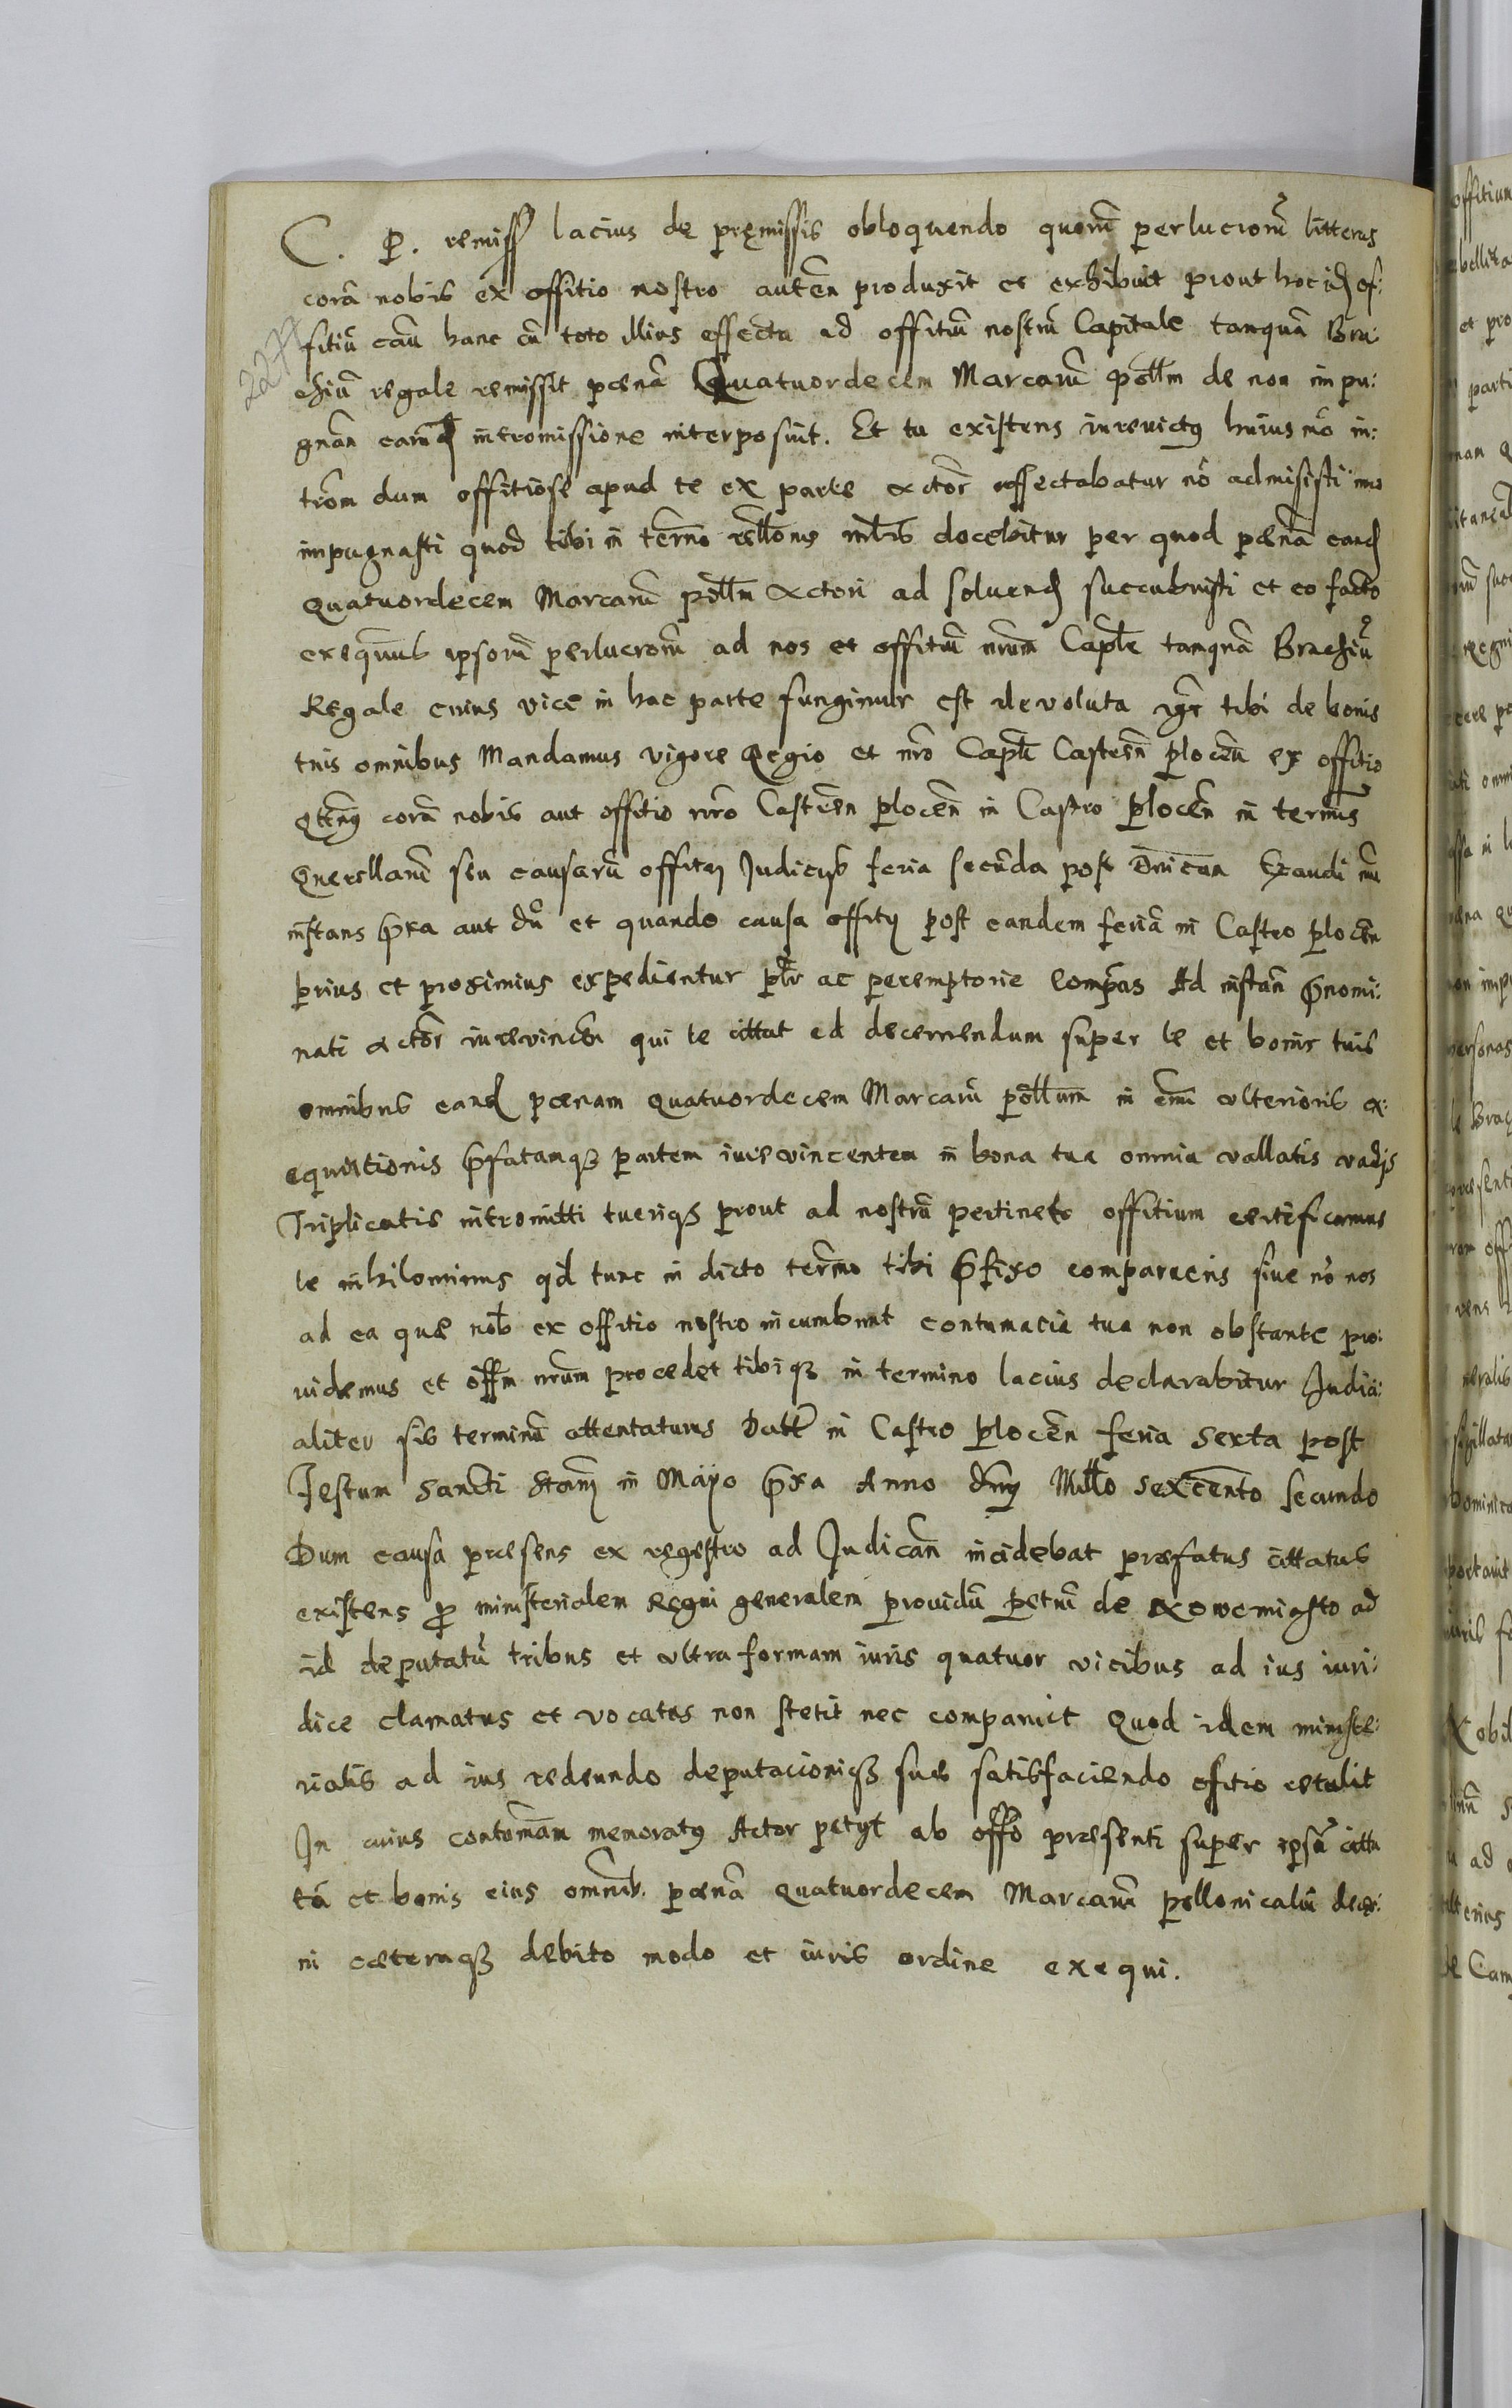 C. P. remiss lacius de pręmissis obloquendo quorū perlucrorū litteras
corā nobis ex offitio nostro autēn produxit et exhibuit prout hoc id of:
fitiū cām hanc cū toto illius effectu ad offitiū nostrū Capitale tanquā Bra:
chiū regale remissit pœnā Quatuordecem Marcarū pollm de non impu:
gnan eamq intromissione interposuit. Et tu existens iurevictus huiusmō in:
trom dum offitiose apud te ex parte Actor affectabatur nō admisisti imo
impugnasti quod tibi in termno rellonis mlris docebitur per quod pœnā eand
Quatuordecem Marcarū pollm Actori ad soluend succubuisti et eo facto
exequnub ipsorū perlucrorū ad nos et offitiū nrum Caple tanquā Brachiū
Regale cuius vice in hac parte fungimur est devoluta igr tibi de bonis
tuis omnibus Mandamus vigore Regio et nro Captli Castren plocēn ex offitio
qtenus corā nobis aut offitio nro Castren plocēn in Castro plocēn in termis
Querellarū seu causarū offity Judicijs feria secunda post Dnicam Exaudi nu
instans pxa aut dū et quando causa offity post eandem feriā in Castro plocēn
prius et proximius expedientur pltr ac peremptorie compas Ad instan pnomi:
nati Actor iurevincēn qui te cittat ad decernendum super te et bonis tuis
omnibus eand pœnam quatuordecem Marcarū pollum in cum ulterioris ex:
equutionis pfatamqȝ partem iurevincentem in bona tua omnia vallatis vadijs
Triplicatis intromitti tueriqȝ prout ad nostrū pertinet offitium certificamus
te nihilominus qd tunc in dicto termno tibi pfixo comparueris siue nō nos
ad ea quæ nob ex offitio nostro incumbunt contumacia tua non obstante pro:
uidemus et offm nrum procedet tibiqȝ in termino lacius declarabitur Judici:
aliter sis terminū attentaturus Datt in Castro plocēn feria sexta post
Festum Sancti Stanj in Mayo pxa Anno dnj Millo sexcento secundo
Dum causa præsens ex regestro ad Judicān incidebat præfatus cittatus
existens p ministerialem Regni generalem prouidū petrū de Nowemiasto ad
id deputatū tribus et ultra formam iuris quatuor vicibus ad ius iuri:
dice clamatus et vocatus non stetit nec comparuit Quod idem ministe:
rialis ad ius redeundo deputacioniqȝ suæ satisfaciendo ofitio retulit
In cuius contomam memoratus Actor petyt ab offo præsenti super ipsū citta
tū et bonis eius omnib. pœnā quatuordecem Marcarū pollonicaliū decer:
ni cæteraqȝ debito modo et iuris ordine exequi.